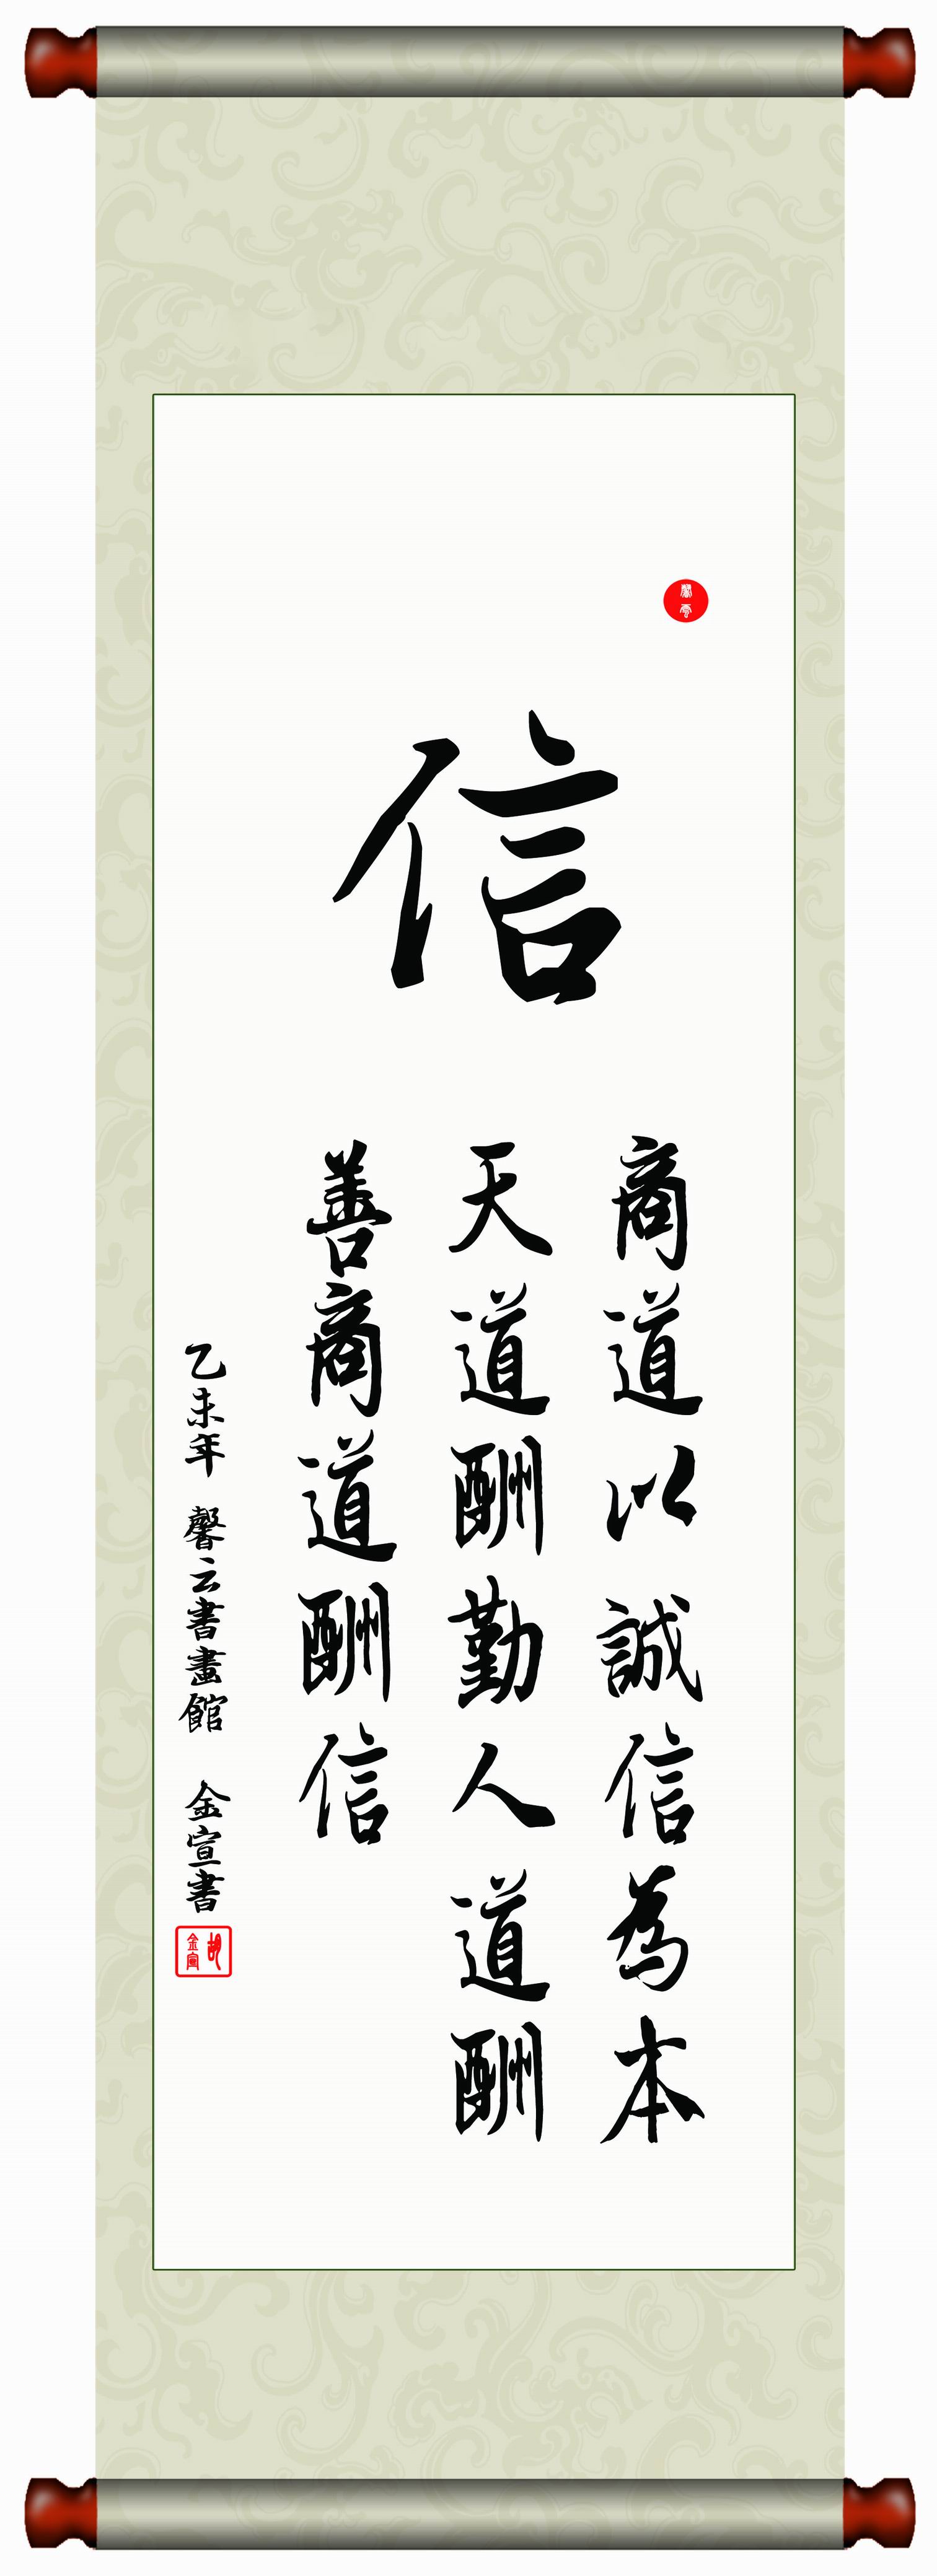 信
商道以誠信為本
天道酬勤人道酬
善商道酬信
乙未年 馨云書畫館 金宣書
胡金宣